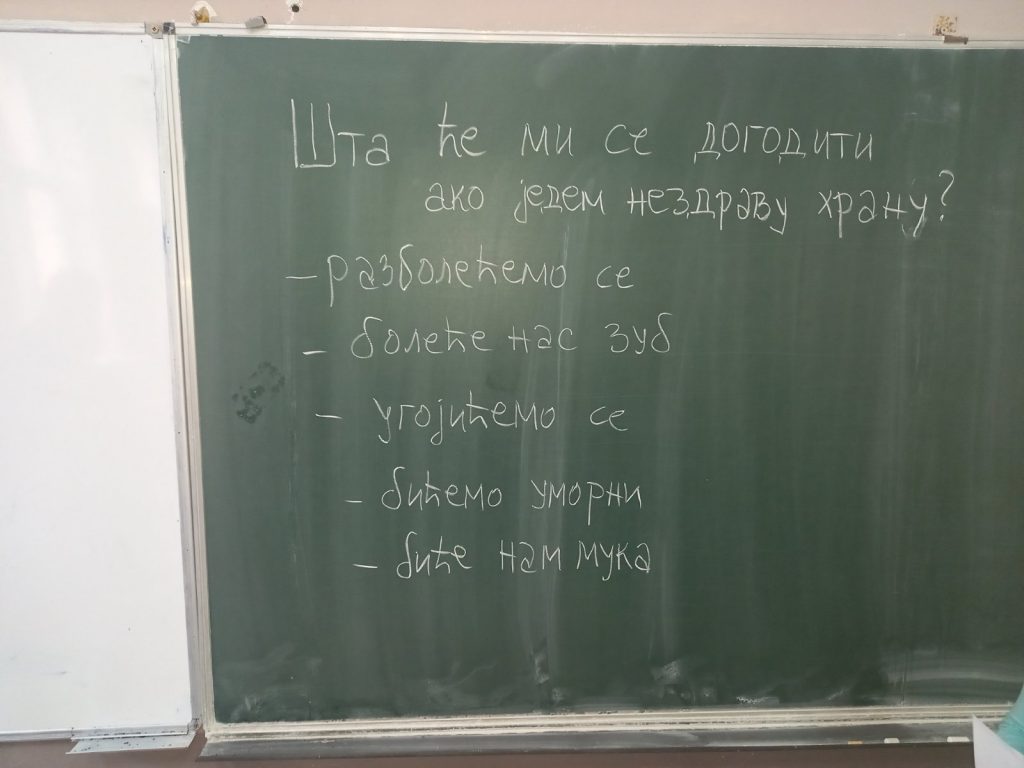 Шта ће ми се догодити
ако једем нездраву храну?
- разболећемо се
- болеће нас зуб
- угојићемо се
- бићемо уморни
- биће нам мука